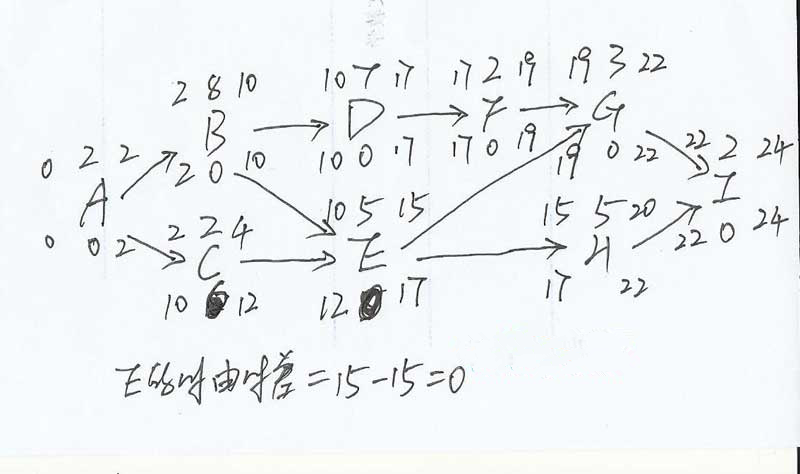 2 8 10 10 7 17 17 2 19 19 3 22
B D F G
0 2 2 2 0 10 10 0 17 17 0 19 19 0 22 22 2 24
A 10 5 15 15 5 20 I
0 0 2 2 2 4 E H 22 0 24
C
10 12 12 17 17 22
E的 由时差=15-15=0